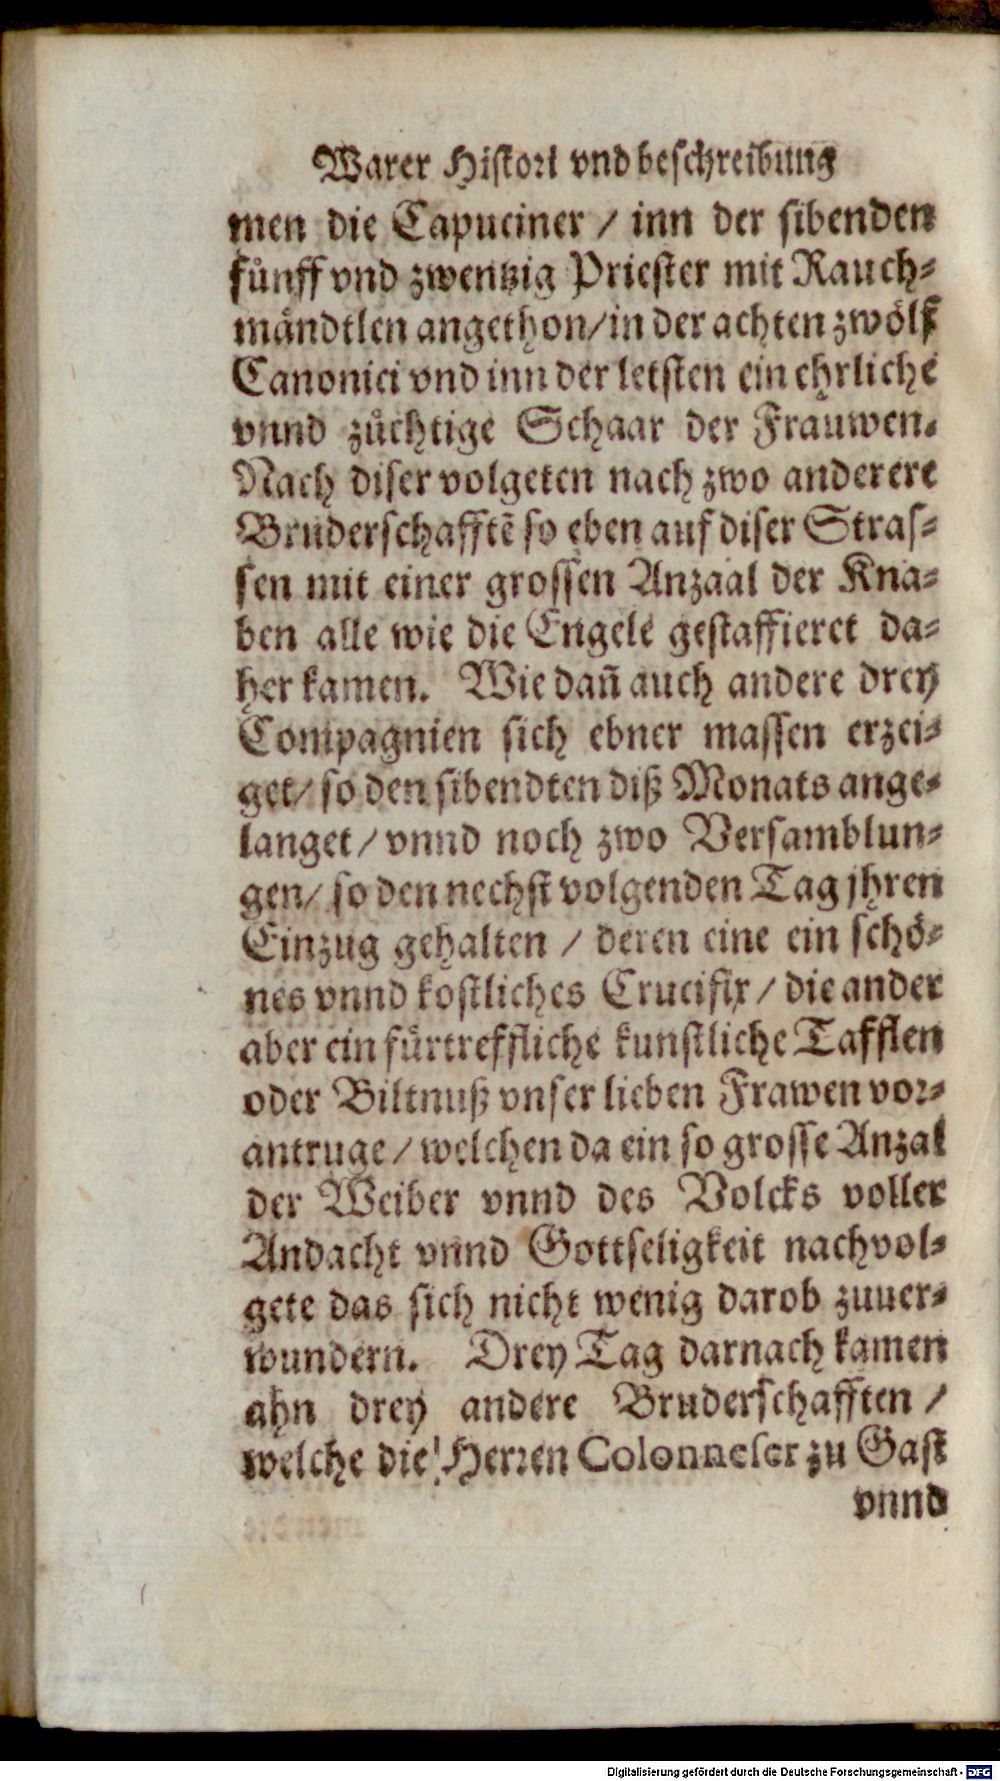 Warer Histori vnd beschreibung
men die Capuciner / inn der sibenden
fünff vnd zwentzig Priester mit Rauch-
mändtlen angethon/in der achten zwölff
Canonici vnd inn der letsten ein ehrliche
vnnd züchtige Schaar der Frauwen.
Nach diser volgeten nach zwo anderere
Bruderschafftē so eben auf diser Stras-
sen mit einer grossen Anzaal der Kna-
ben alle wie die Engele gestaffieret da-
her kamen. Wie dañ auch andere drey
Compagnien sich ebner massen erzei-
get/ so den sibendten diß Monats ange-
langet / vnnd noch zwo Versamblun-
gen/ so den nechst volgenden Tag jhren
Einzug gehalten / deren eine ein schö-
nes vnnd kostliches Crucifix / die ander
aber ein fürtreffliche kunstliche Tafflen
oder Biltnuß vnser lieben Frawen vor-
antruge / welchen da ein so grosse Anzal
der Weiber vnnd des Volcks voller
Andacht vnnd Gottseligkeit nachvol-
gete das sich nicht wenig darob zuuer-
wundern. Drey Tag darnach kamen
ahn drey andere Bruderschafften /
welche die Herren Colonneser zu Gast
vnnd
Digitalisierung gefördert durch die Deutsche Forschungsgemeinschaft - DFG